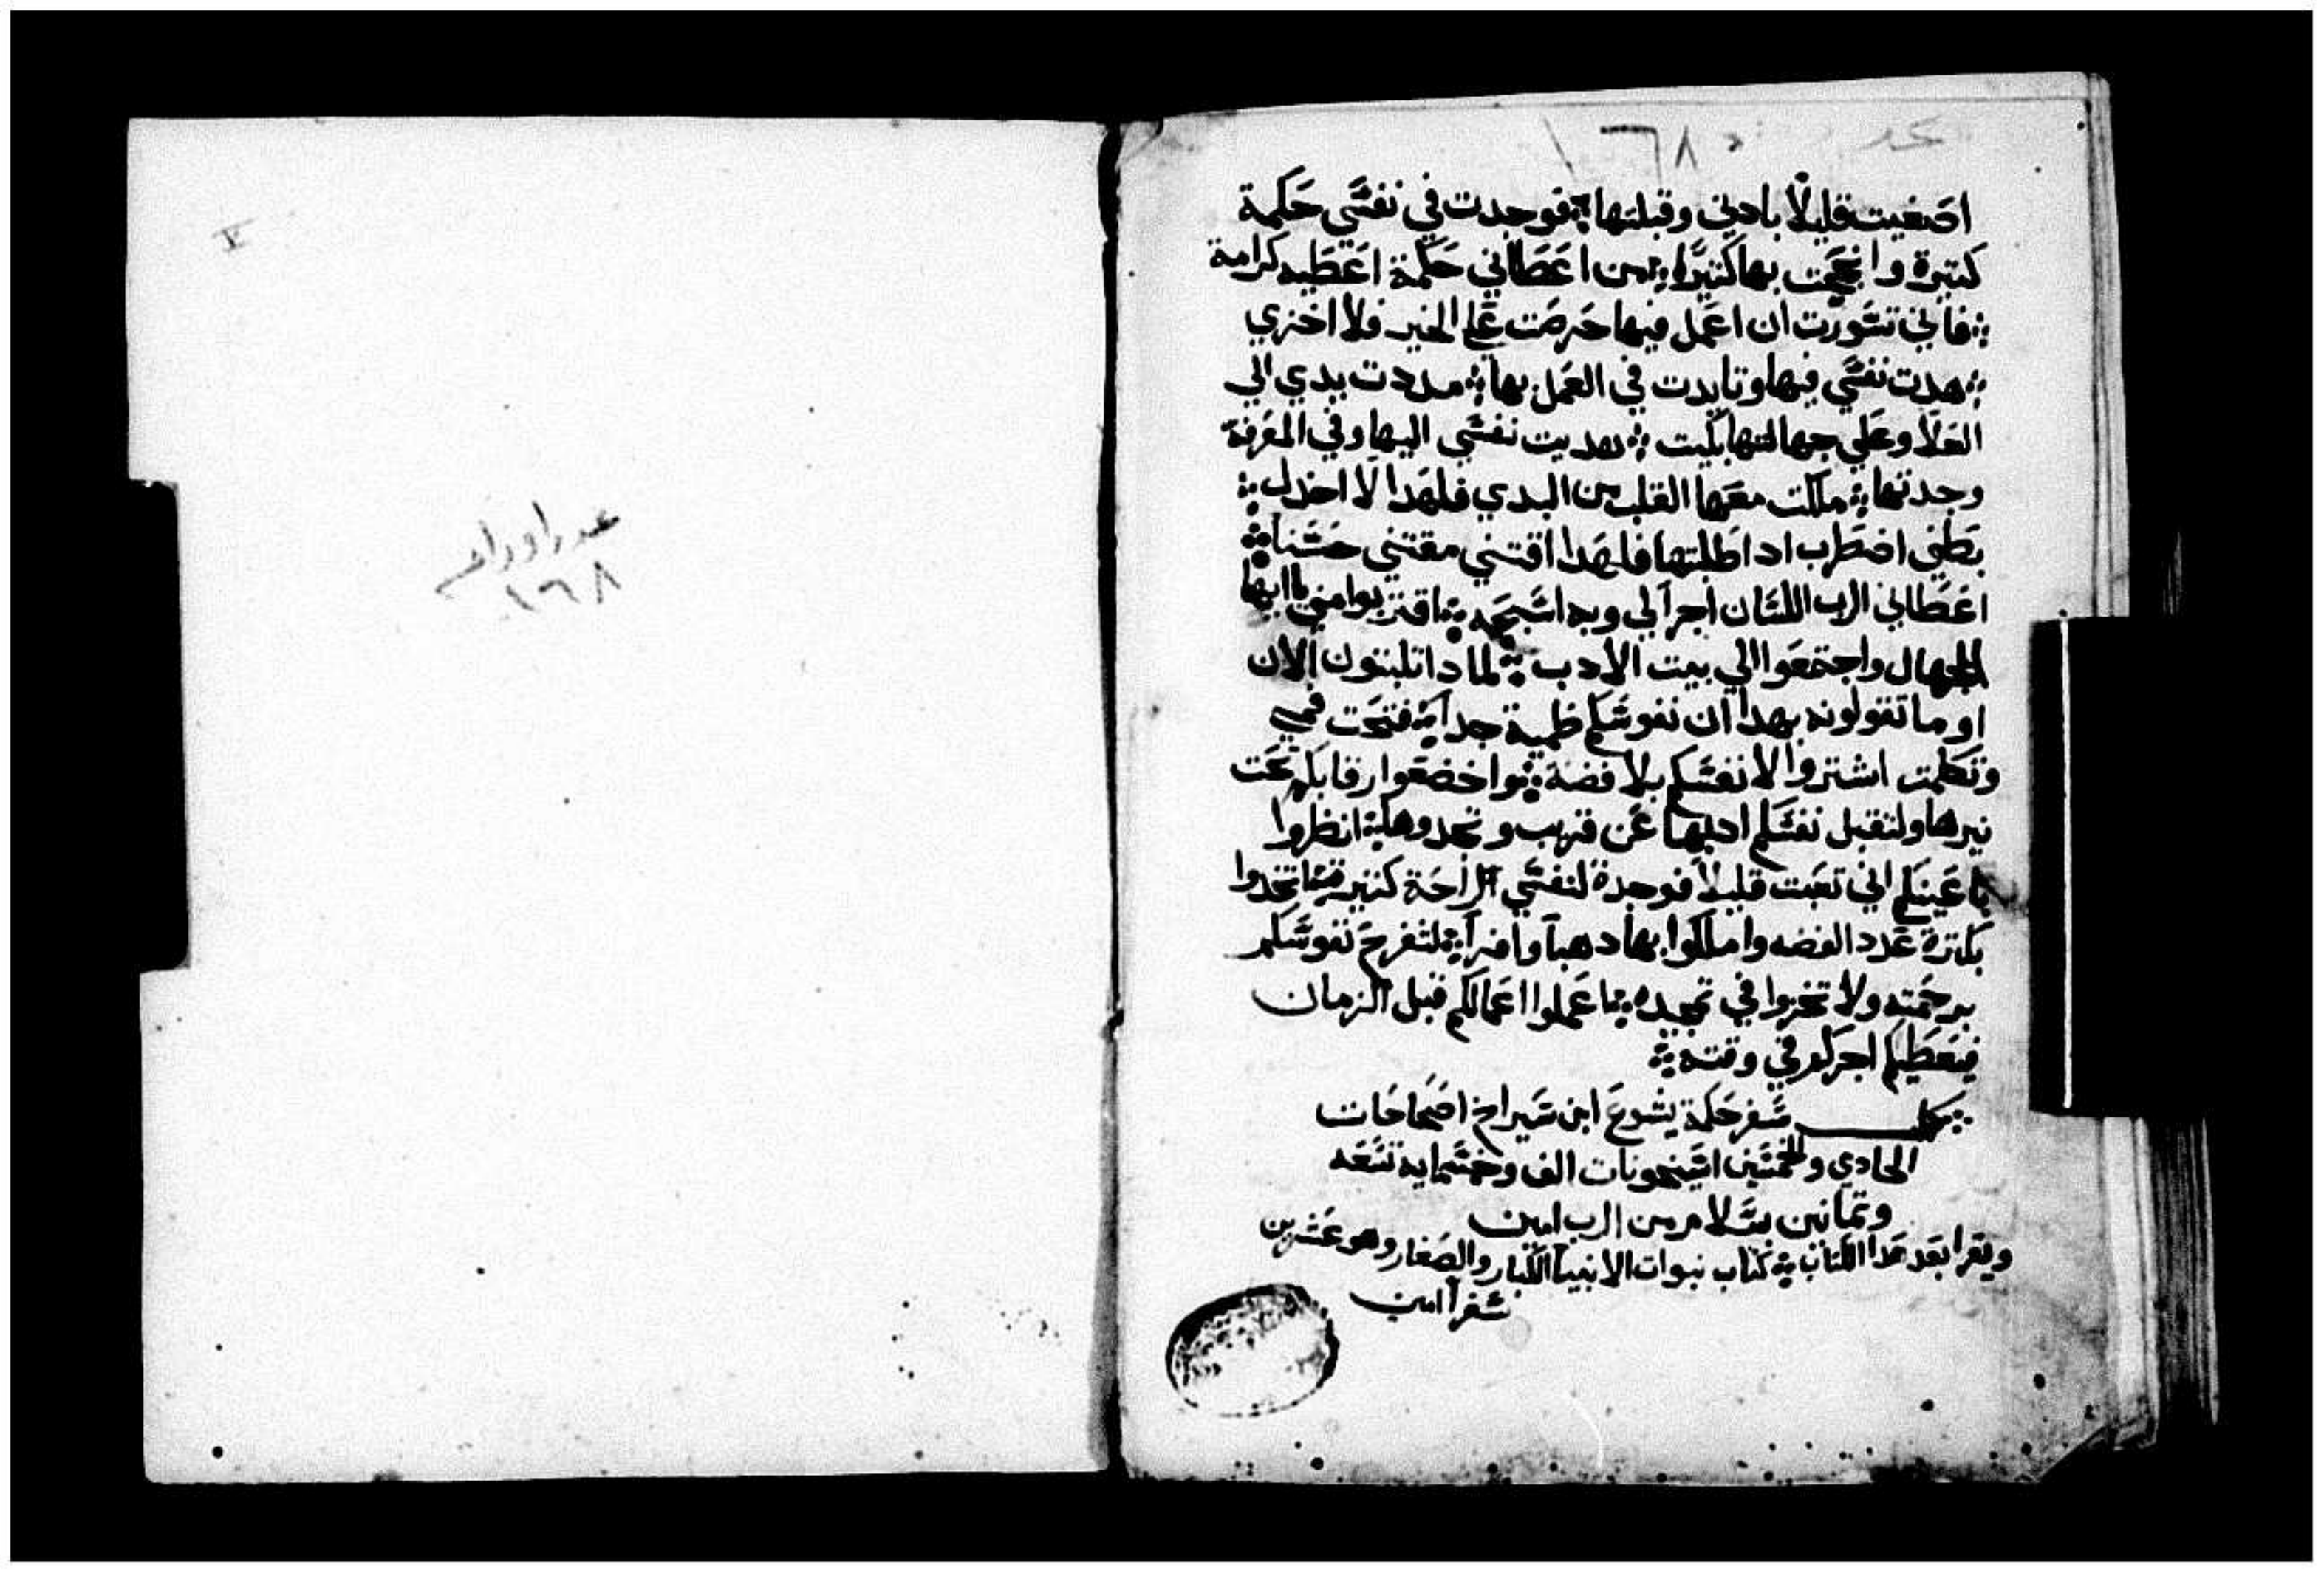 عدد ١٦٨
اصغيت قليلًا بادني وقبلتها ܀ فوجدت في نفسي حكمة
كتيرة وانجحت بها كتيرًا ܀ من اعطاني حكمة اعطيه كرامة
܀ فاني تشورت ان اعمل فيها حرصت علي الخير فلا اخزي
܀ هدت نفسي فيها وتايدت في العمل بها ܀ مددت يدي الي
العلا وعلي جهالتها بكيت ܀ هديت نفسي اليها وفي المعرفة
وجدتها ܀ ملكت معها القلب من البدي فلهدا لا اخدل ܀
بطني اضطرب اد اطلبتها فلهدا اقتني مقتني حسنا ܀
اعطاني الرب اللسان اجرًا لي وبه اسبحه ܀ اقتربوا مني ياايها
الجهال واجتمعوا الي بيت الادب ܀ لمادا تلبتون الان
او ما تقولونه بهدا ان نفوسكم ظمية جدًا ܀ فتحت فمي
وتكلمت اشتروا لانفسكم بلا فضة ܀ واخضعوا رقابكم تحت
نيرها ولتقبل نفسكم ادبها عن قريب وتجدوها ܀ انظروا
باعينكم اني تعبت قليلًا فوجدة لنفسي الراحة كتير ܀ اتخدوا
بكترة عدد الفضه واملكوا بها دهبًا وافرًا ܀ لتفرح نفوسكم
برحمته ولا تخزوا في تمجيده ܀ اعملوا اعمالكم قبل الزمان
فيعطيكم اجركم في وقته ܀
܀ كمل سفر حكمة يشوع ابن سيراخ اصحاحات
الحادي والخمسين استيخونات الف وخمسمايه تسعه
وتمانين بسلام من الرب امين
ويقرا بعد هدا الكتاب ܀ كتاب نبوات الانبيا الكبار والصغار وهو عشرين
سفرًا امين
١٦٨